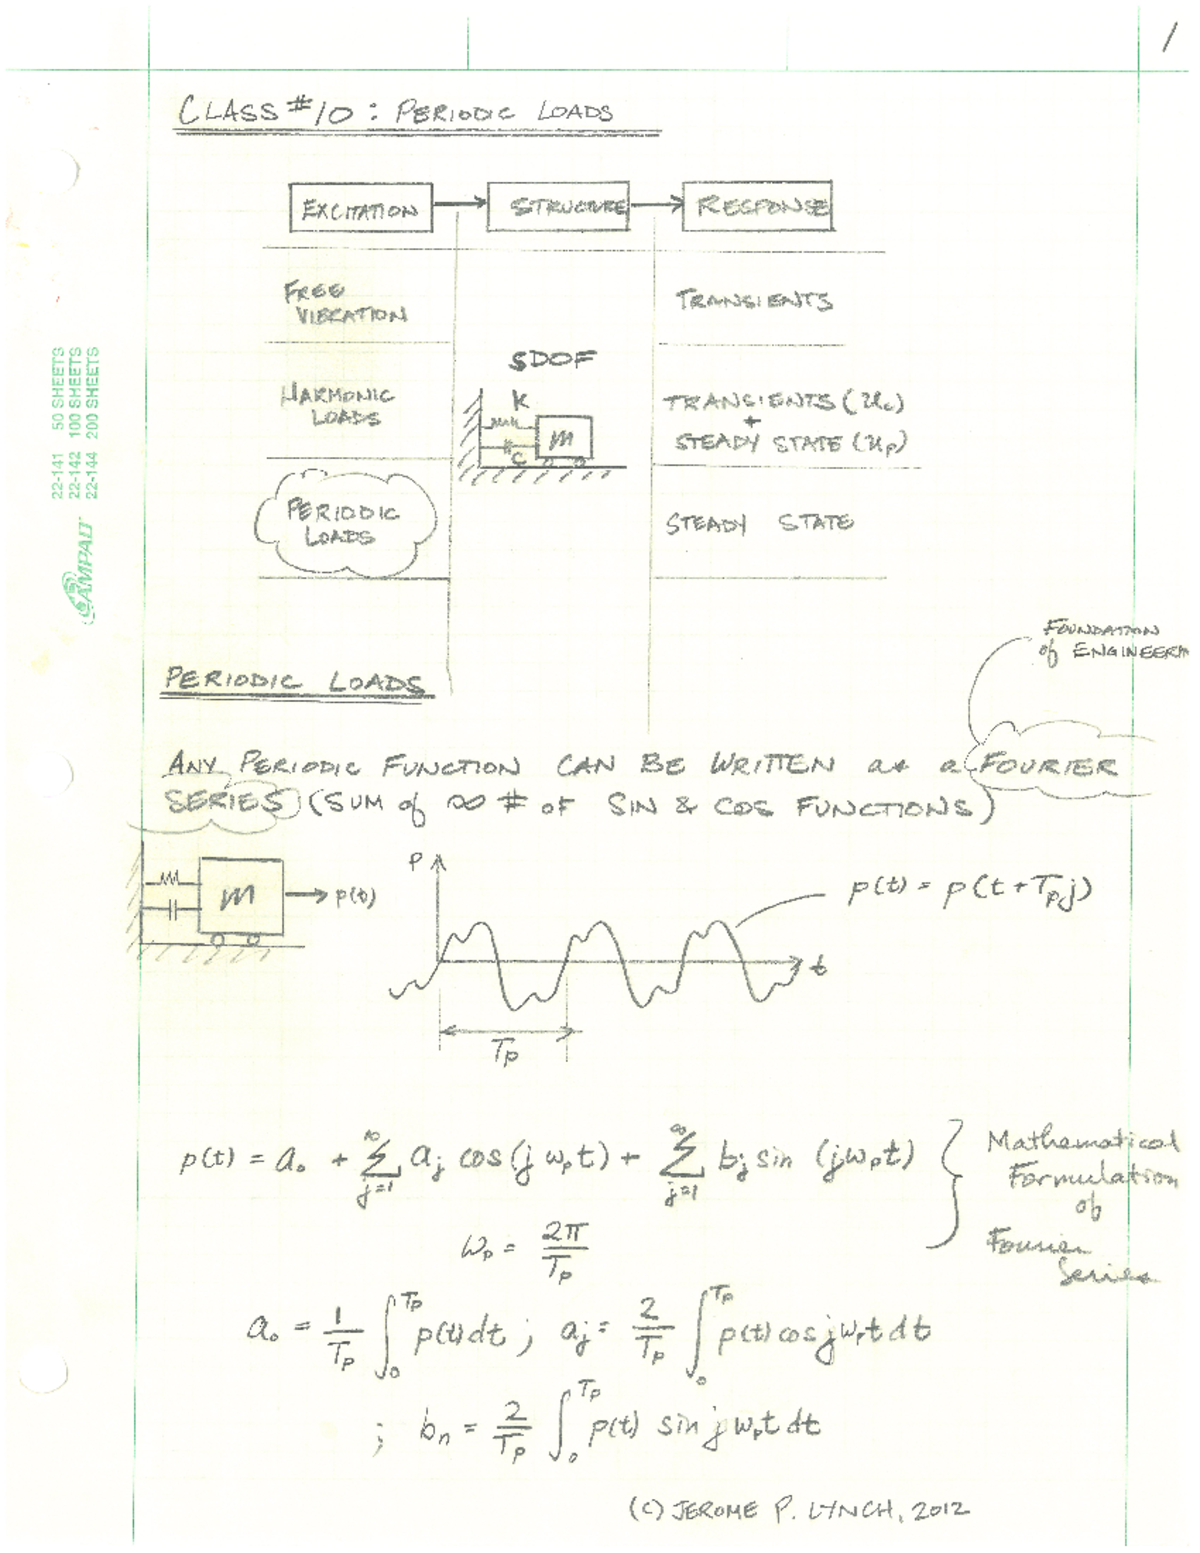 1
CLASS #10: PERIODIC LOADS
EXCITATION
STRUCTURE
RESPONSE
FREE
VIBRATION
TRANSIENTS
SDOF
HARMONIC
LOADS
K
m
C
TRANSIENTS (u_c)
+
STEADY STATE (u_p)
PERIODIC
LOADS
STEADY STATE
22-141 50 SHEETS
22-142 100 SHEETS
22-144 200 SHEETS
AMPAD
FOUNDATION
of ENGINEERIN
PERIODIC LOADS
ANY PERIODIC FUNCTION CAN BE WRITTEN as a FOURIER
SERIES (SUM of ∞ # OF SIN & COS FUNCTIONS)
m
p(t)
P
p(t) = p(t + T_p j)
t
T_p
p(t) = a_0 + ∑_{j=1}^{∞} a_j cos (j ω_p t) + ∑_{j=1}^{∞} b_j sin (j ω_p t)
Mathematical
Formulation
of
Fourier
Series
ω_p = 2π / T_p
a_0 = 1/T_p ∫_0^{T_p} p(t) dt ; a_j = 2/T_p ∫_0^{T_p} p(t) cos j ω_p t dt
; b_n = 2/T_p ∫_0^{T_p} p(t) sin j ω_p t dt
(C) JEROME P. LYNCH, 2012